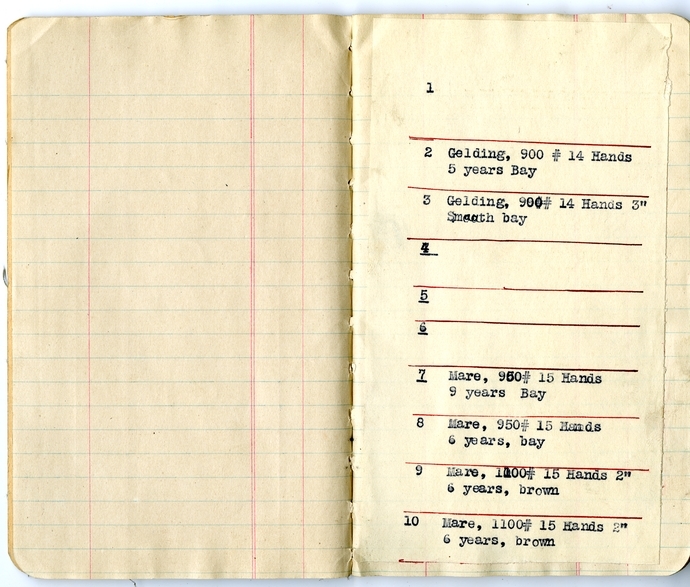 1
2 Gelding, 900 # 14 Hands
5 years Bay
3 Gelding, 900# 14 Hands 3"
Smooth bay
4
5
6
7 Mare, 950# 15 Hands
9 years Bay
8 Mare, 950# 15 Hands
6 years, bay
9 Mare, 1100# 15 Hands 2"
6 years, brown
10 Mare, 1100# 15 Hands 2"
6 years, brown